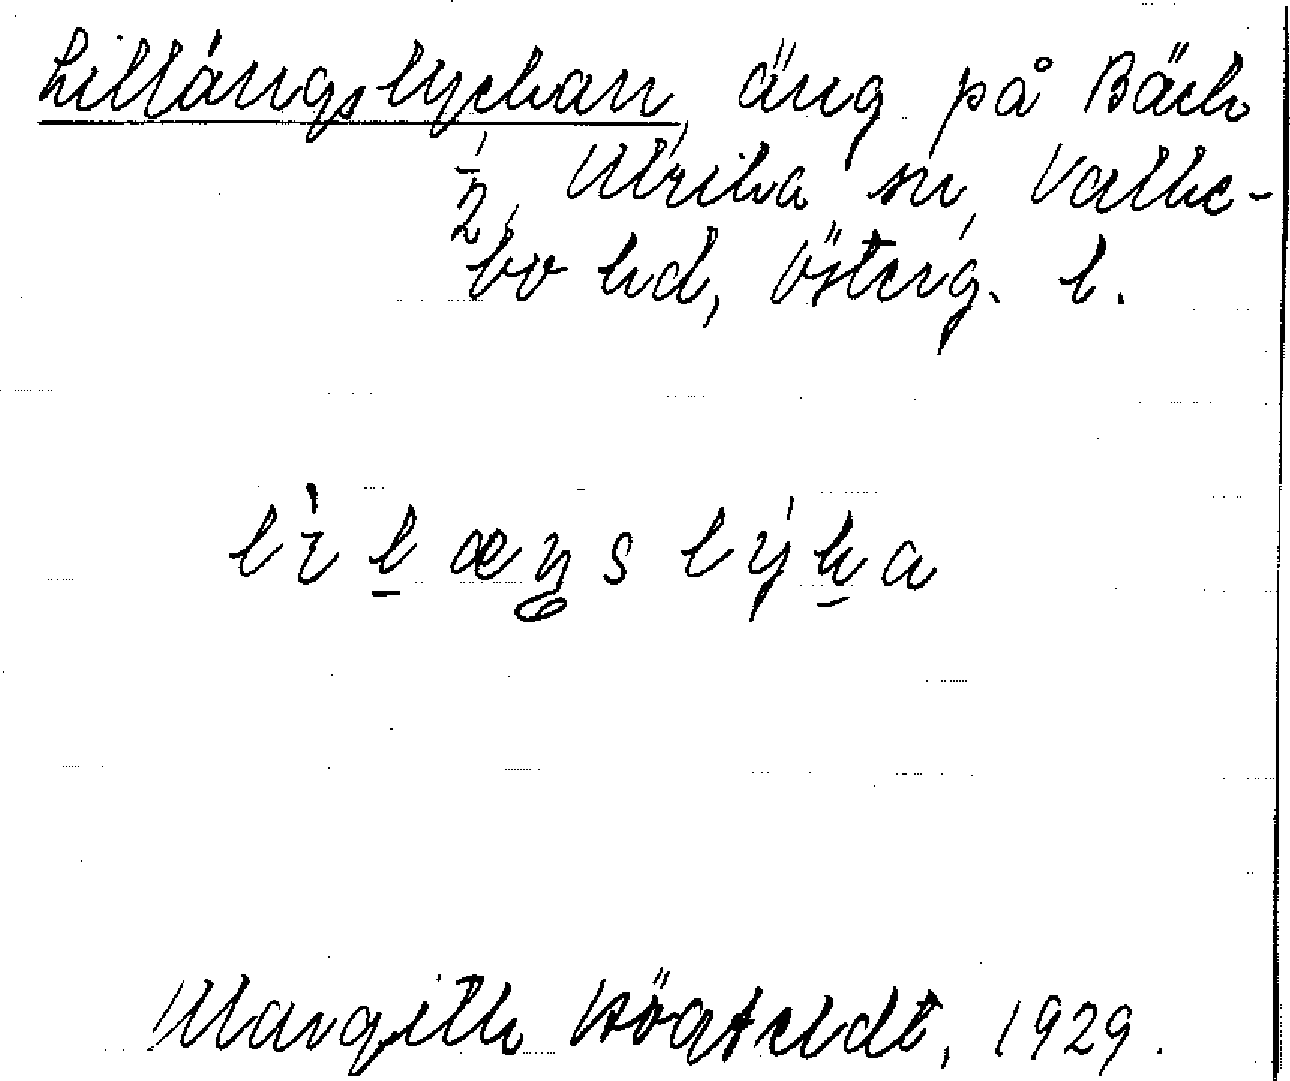 Lillängslyckan, äng på Bäck
1/2, Ulrika sn, Valke-
bo hd, Österg. l.
lìlæŋslýka
Margith Högfeldt, 1929.